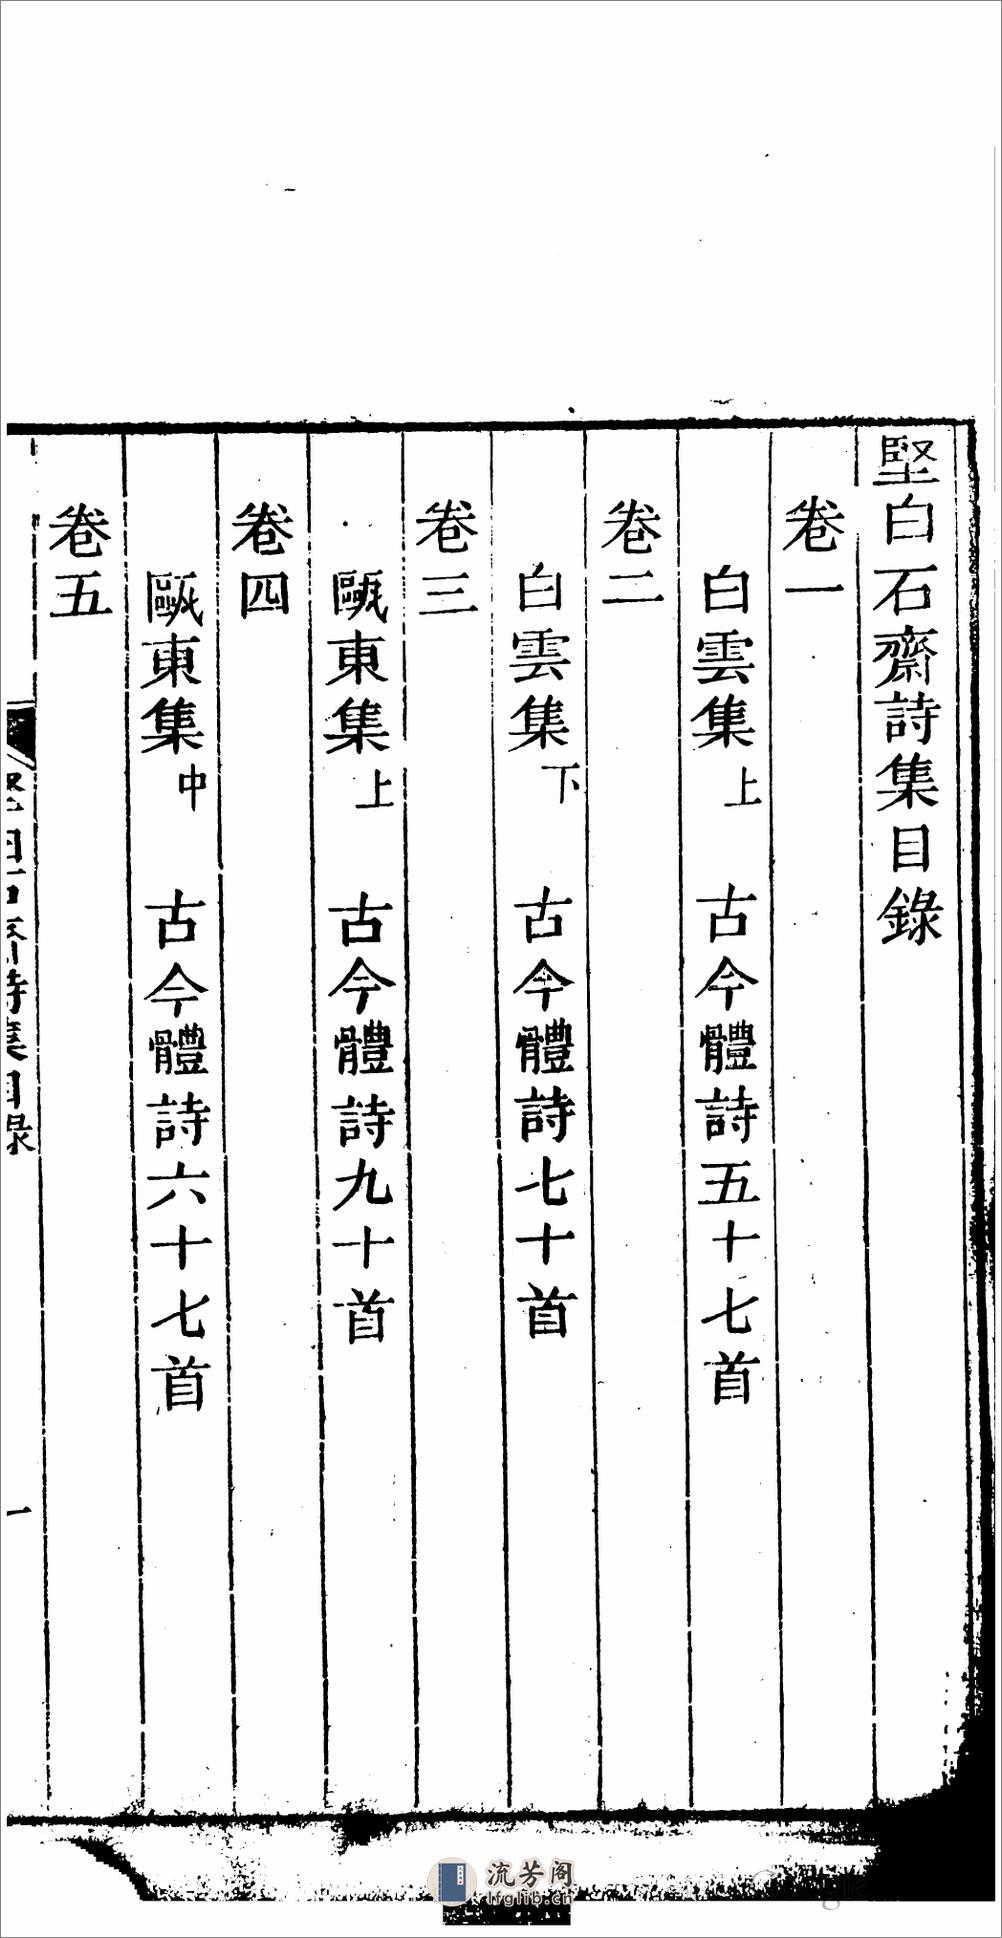 堅白石齋詩集目錄
卷一
白雲集上 古今體詩五十七首
卷二
白雲集下 古今體詩七十首
卷三
甌東集上 古今體詩九十首
卷四
甌東集中 古今體詩六十七首
卷五
堅白石齋詩集目錄
一
流芳阁
lfglib.cn